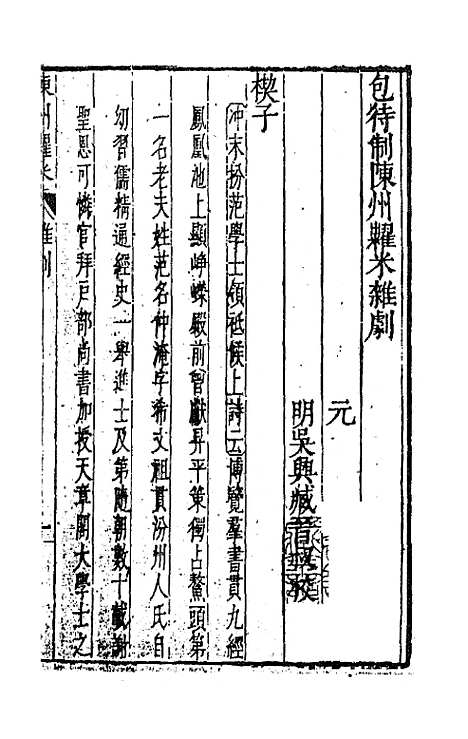 包待制陳州糶米雜劇
元
明吳興臧晉叔校
楔子
冲末扮范學士領祗候上詩云博覽羣書貫九經
鳳凰池上顯崢嶸殿前曾獻昇平策獨占鰲頭第
一名老夫姓范名仲淹字希文祖貫汾州人氏自
幼習儒精通經史一舉進士及第隨朝數十載謝
聖恩可憐官拜戶部尚書加授天章閣大學士之
陳州糶米 雜劇
一